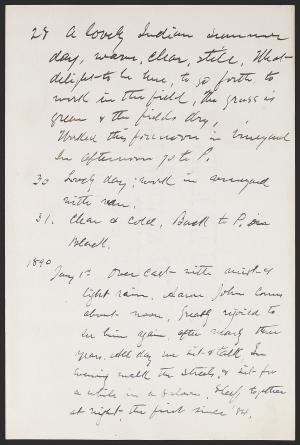 29 A lovely Indian summer
day, warm, clear, still, What
delight to be here, to go forth, to
work in the field, the grass is
green & the fields dry,
Worked this forenoon in vineyard
In afternoon go to P.
30 Lovely day; work in vineyard
with men.
31. Clear & cold, Back to P, in
Black.
1890
Jany 1st Over cast with mist &
light rain. Aaron John comes
about noon, Greatly rejoiced to
see him again, after nearly three
years. All day we sit & talk, In
evening walk the streets, & sit for
a while in a saloon. Sleep together
at night, the first since